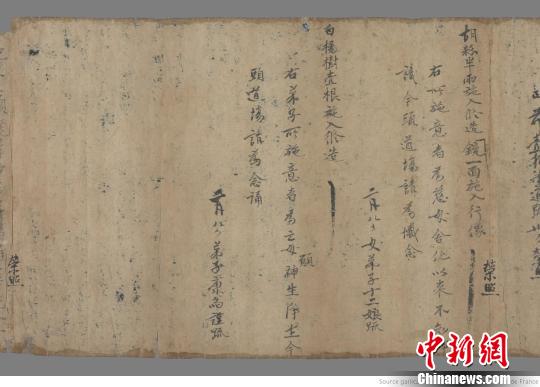 胡粉半兩施入修造鏡一面施入行像
榮照
右所施意者為慈母舍化以來不知
今頭道場請為懺念
二月八日女弟子十二娘疏
白楊樹壹根施入修造
右弟子所施意者為亡女神生淨土今
願
頭道場請為念誦
月八日弟子謹疏
榮照
Source gallica
de France
中新网
www.Chinanews.com